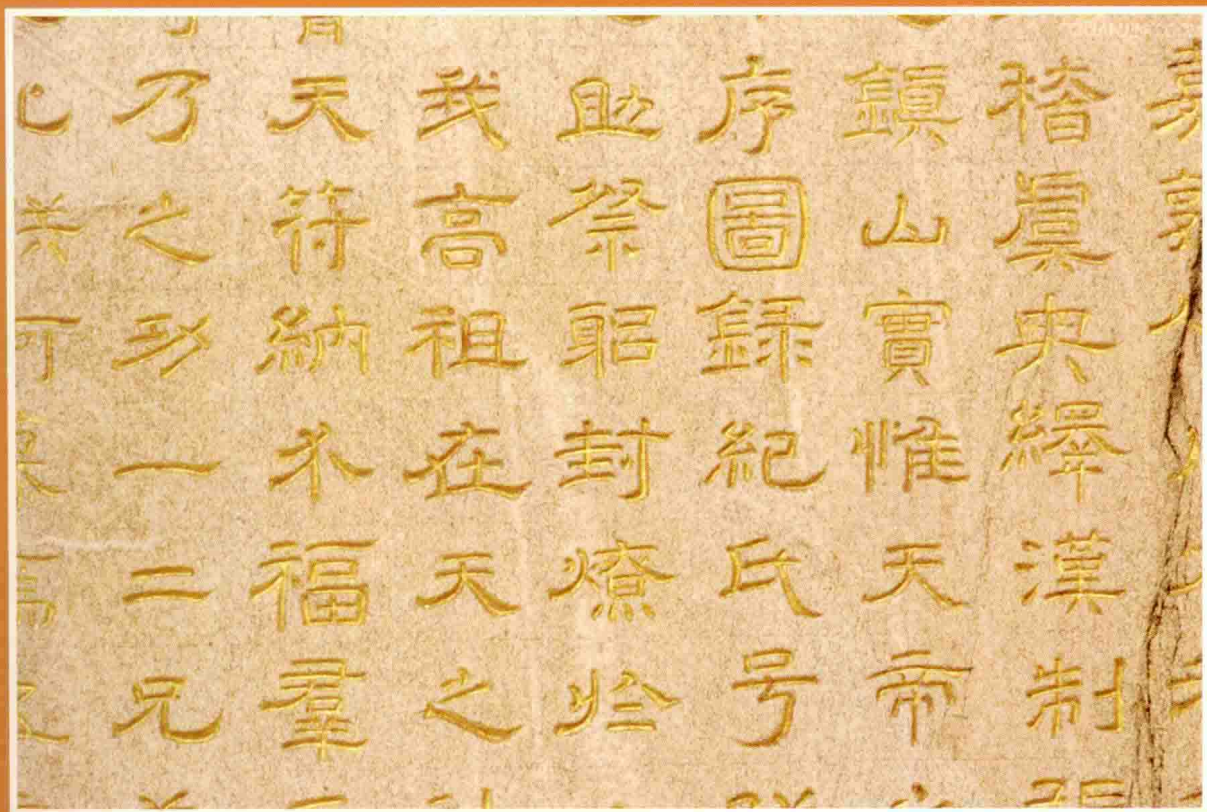 稽虞典繹漢制
鎮山實惟天帝
序圖録紀氏号
助祭躬封燎於
我高祖在天之
天符納介福羣
乃之功一二兄